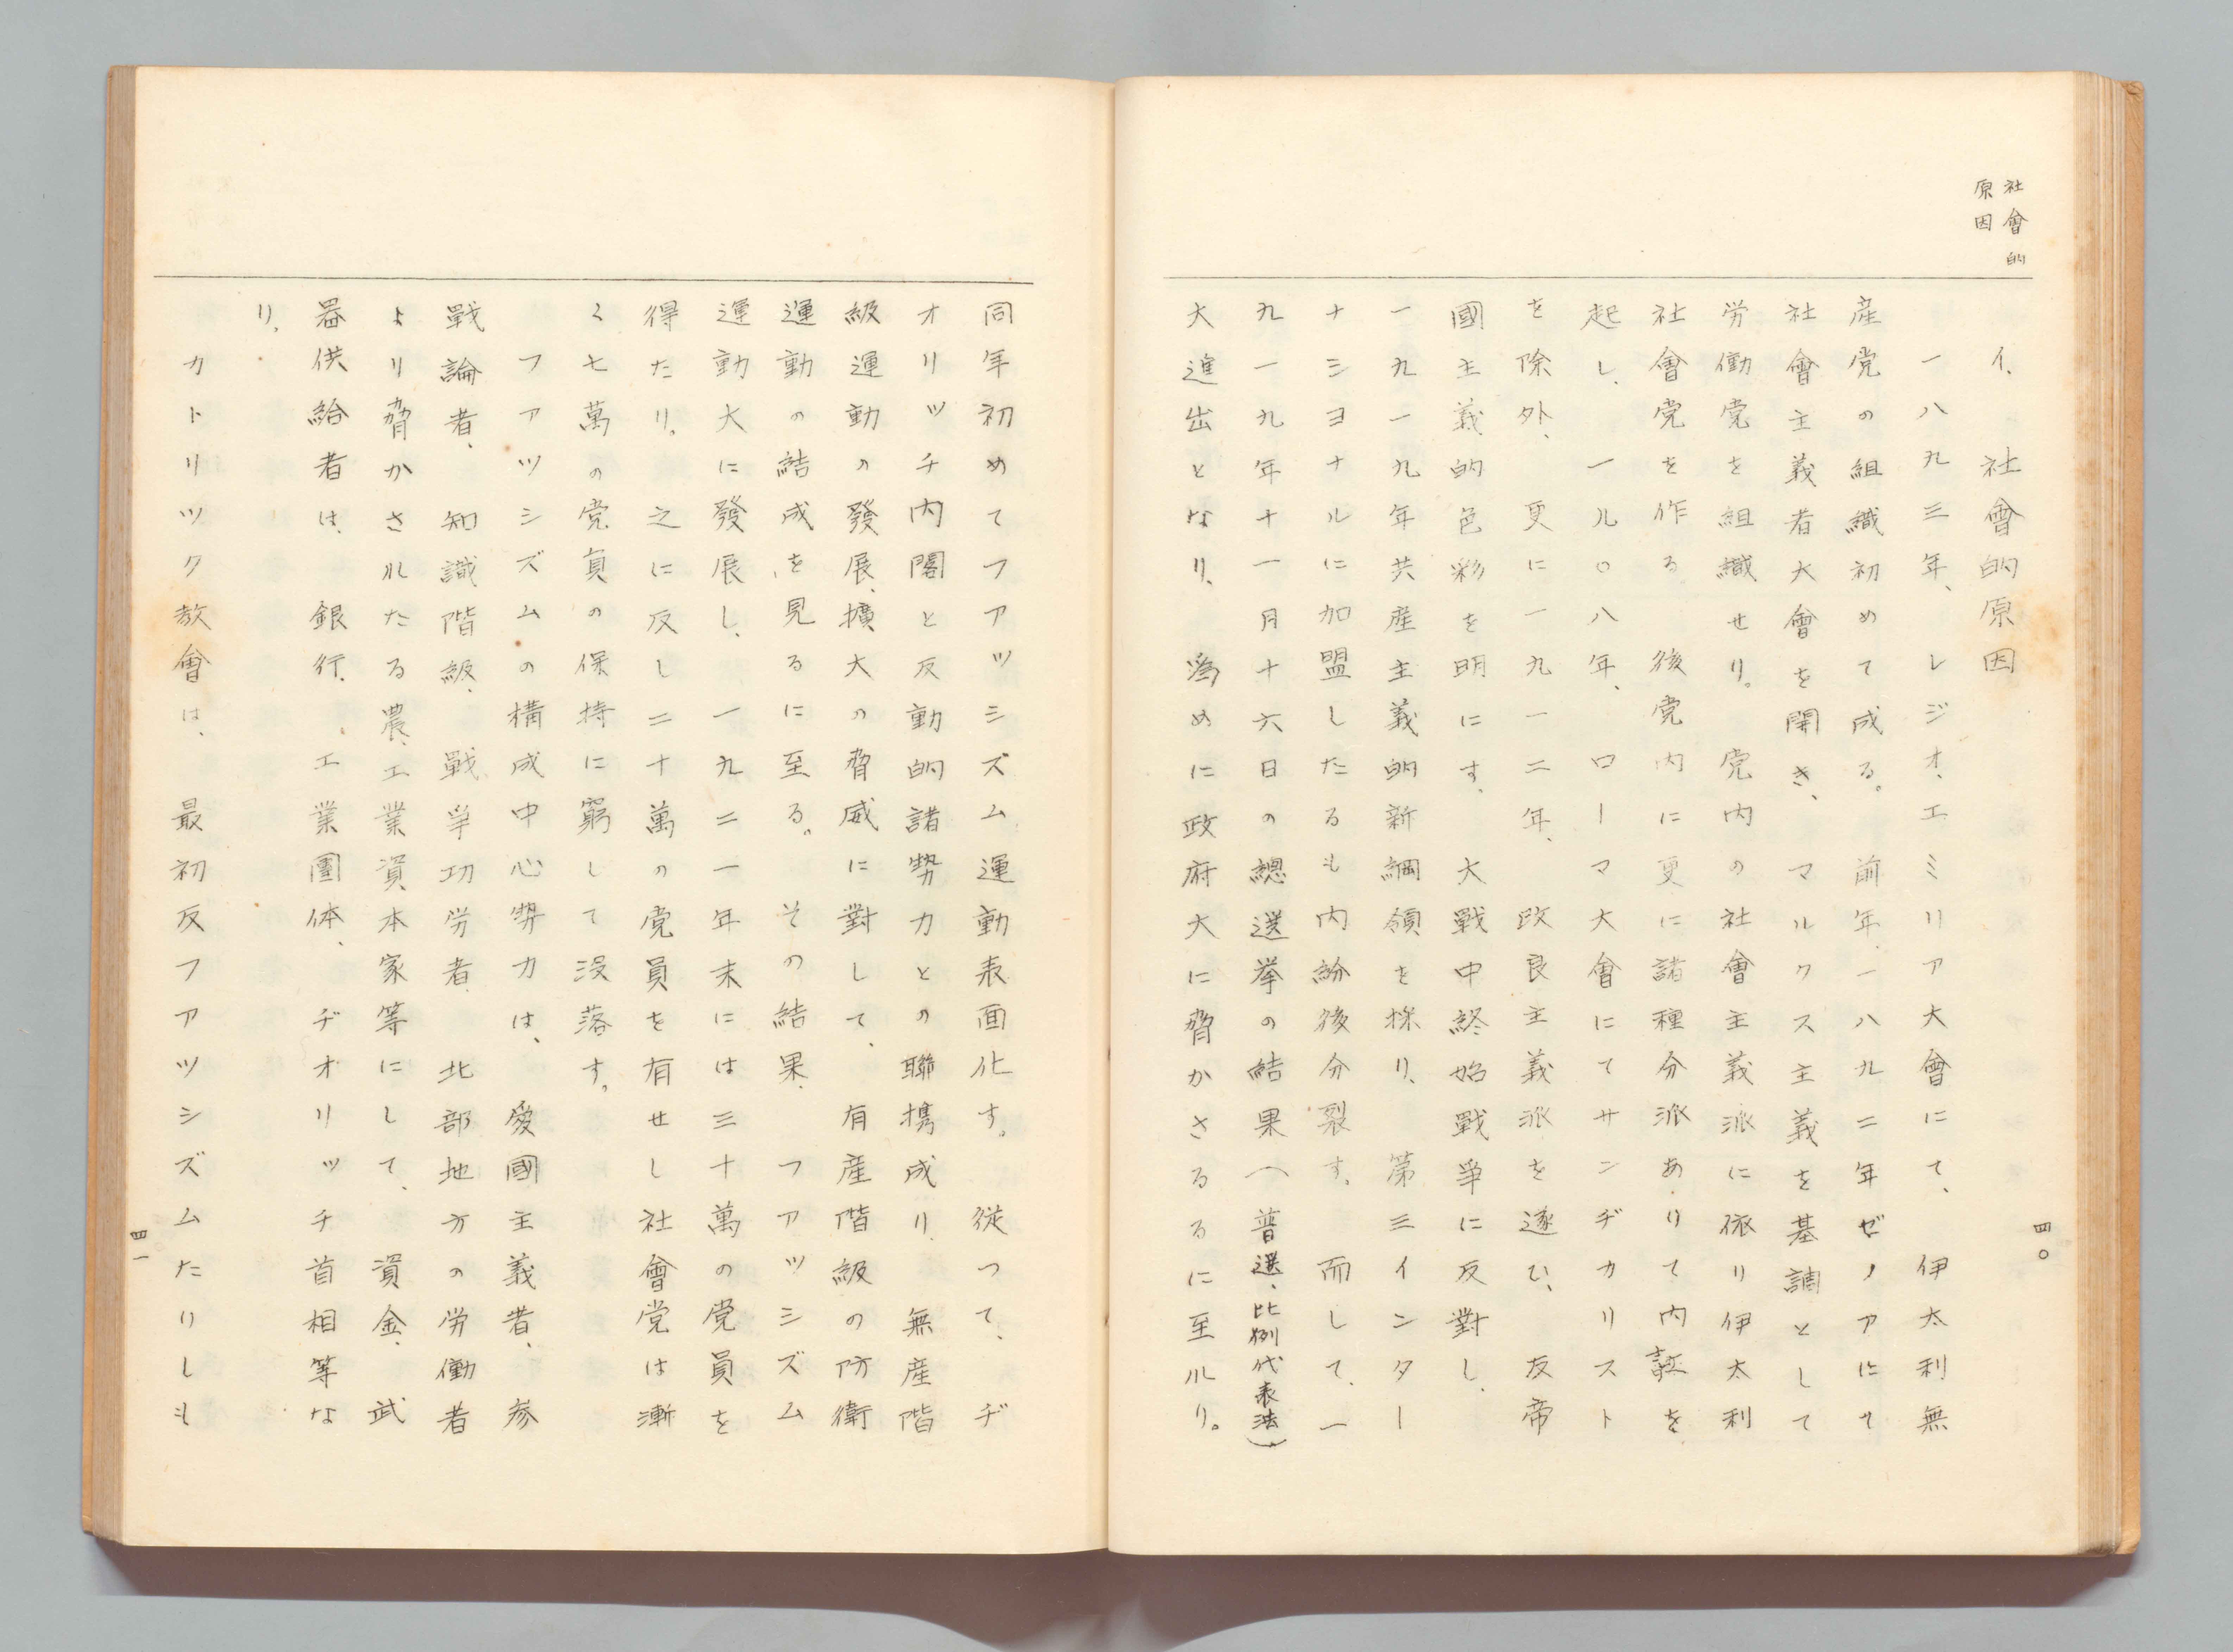 社會的
原因
イ、社會的原因
一八九三年、レジオ、エミリア大會にて、伊太利無
産党の組織初めて成る。前年、一八九二年ゼノアにて
社會主義者大會を開き、マルクス主義を基調として
労働党を組織せり。党内の社會主義派に依り伊太利
社會党を作る　後党内に更に諸種分派ありて内訌を
起し、一九〇八年、ローマ大會にてサンヂカリスト
を除外、更に一九一二年、改良主義派を逐ひ、反帝
國主義的色彩を明にす、大戰中終始戰爭に反對し、
一九一九年共産主義的新綱領を採り、第三インター
ナシヨナルに加盟したるも内紛後分裂す。而して、一
九一九年十一月十六日の總選挙の結果（普選、比例代表法）
大進出となり、為めに政府大に脅かさるるに至ルり。
四〇
同年初めてフアツシズム運動表面化す。従つて、ヂ
オリツチ内閣と反動的諸勢力との聯携成り、無産階
級運動の發展、擴大の脅威に對して、有産階級の防衛
運動の結成を見るに至る。その結果、フアツシズム
運動大に發展し、一九二一年末には三十萬の党員を
得たり。之に反し二十萬の党員を有せし社會党は漸
く七萬の党員の保持に窮して没落す。
フアツシズムの構成中心勢力は、愛國主義者、参
戰論者、知識階級、戰爭功労者、北部地方の労働者
より脅かさルたる農、工業資本家等にして、資金、武
器供給者は、銀行、工業團体、ヂオリツチ首相等な
り、
カトリツク教會は、最初反フアツシズムたりしも
四一